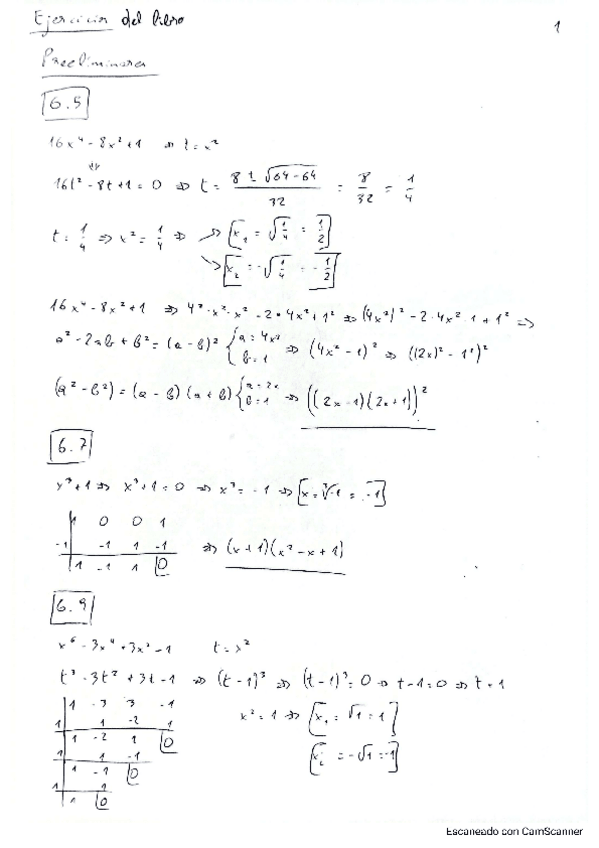 Ejercicios del libro
1
Preeliminares
6.5
16x⁴ - 8x² + 1 ⇒ t = x²
16t² - 8t + 1 = 0 ⇒ t = (8 ± √(64 - 64)) / 32 = 8/32 = 1/4
t = 1/4 ⇒ x² = 1/4 ⇒ [x₁ = √(1/4) = 1/2]
[x₂ = -√(1/4) = -1/2]
16x⁴ - 8x² + 1 ⇒ 4² · x² · x² - 2 · 4x² + 1² ⇒ (4x²)² - 2 · 4x² · 1 + 1² ⇒
a² - 2ab + b² = (a - b)² { a = 4x² b = 1 ⇒ (4x² - 1)² ⇒ ((2x)² - 1²)²
(a² - b²) = (a - b)(a + b) { a = 2x b = 1 ⇒ ((2x - 1)(2x + 1))²
6.7
x³ + 1 ⇒ x³ + 1 = 0 ⇒ x³ = -1 ⇒ [x = ³√-1 = -1]
1 0 0 1
-1 -1 1 -1 ⇒ (x + 1)(x² - x + 1)
1 -1 1 0
6.9
x⁶ - 3x⁴ + 3x² - 1 t = x²
t³ - 3t² + 3t - 1 ⇒ (t - 1)³ ⇒ (t - 1)³ = 0 ⇒ t - 1 = 0 ⇒ t = 1
1 -3 3 -1
1 1 -2 1 x² = 1 ⇒ [x₁ = √1 = 1]
1 -2 1 0
1 1 -1 [x₂ = -√1 = -1]
1 -1 0
1 1
1 0
Escaneado con CamScanner